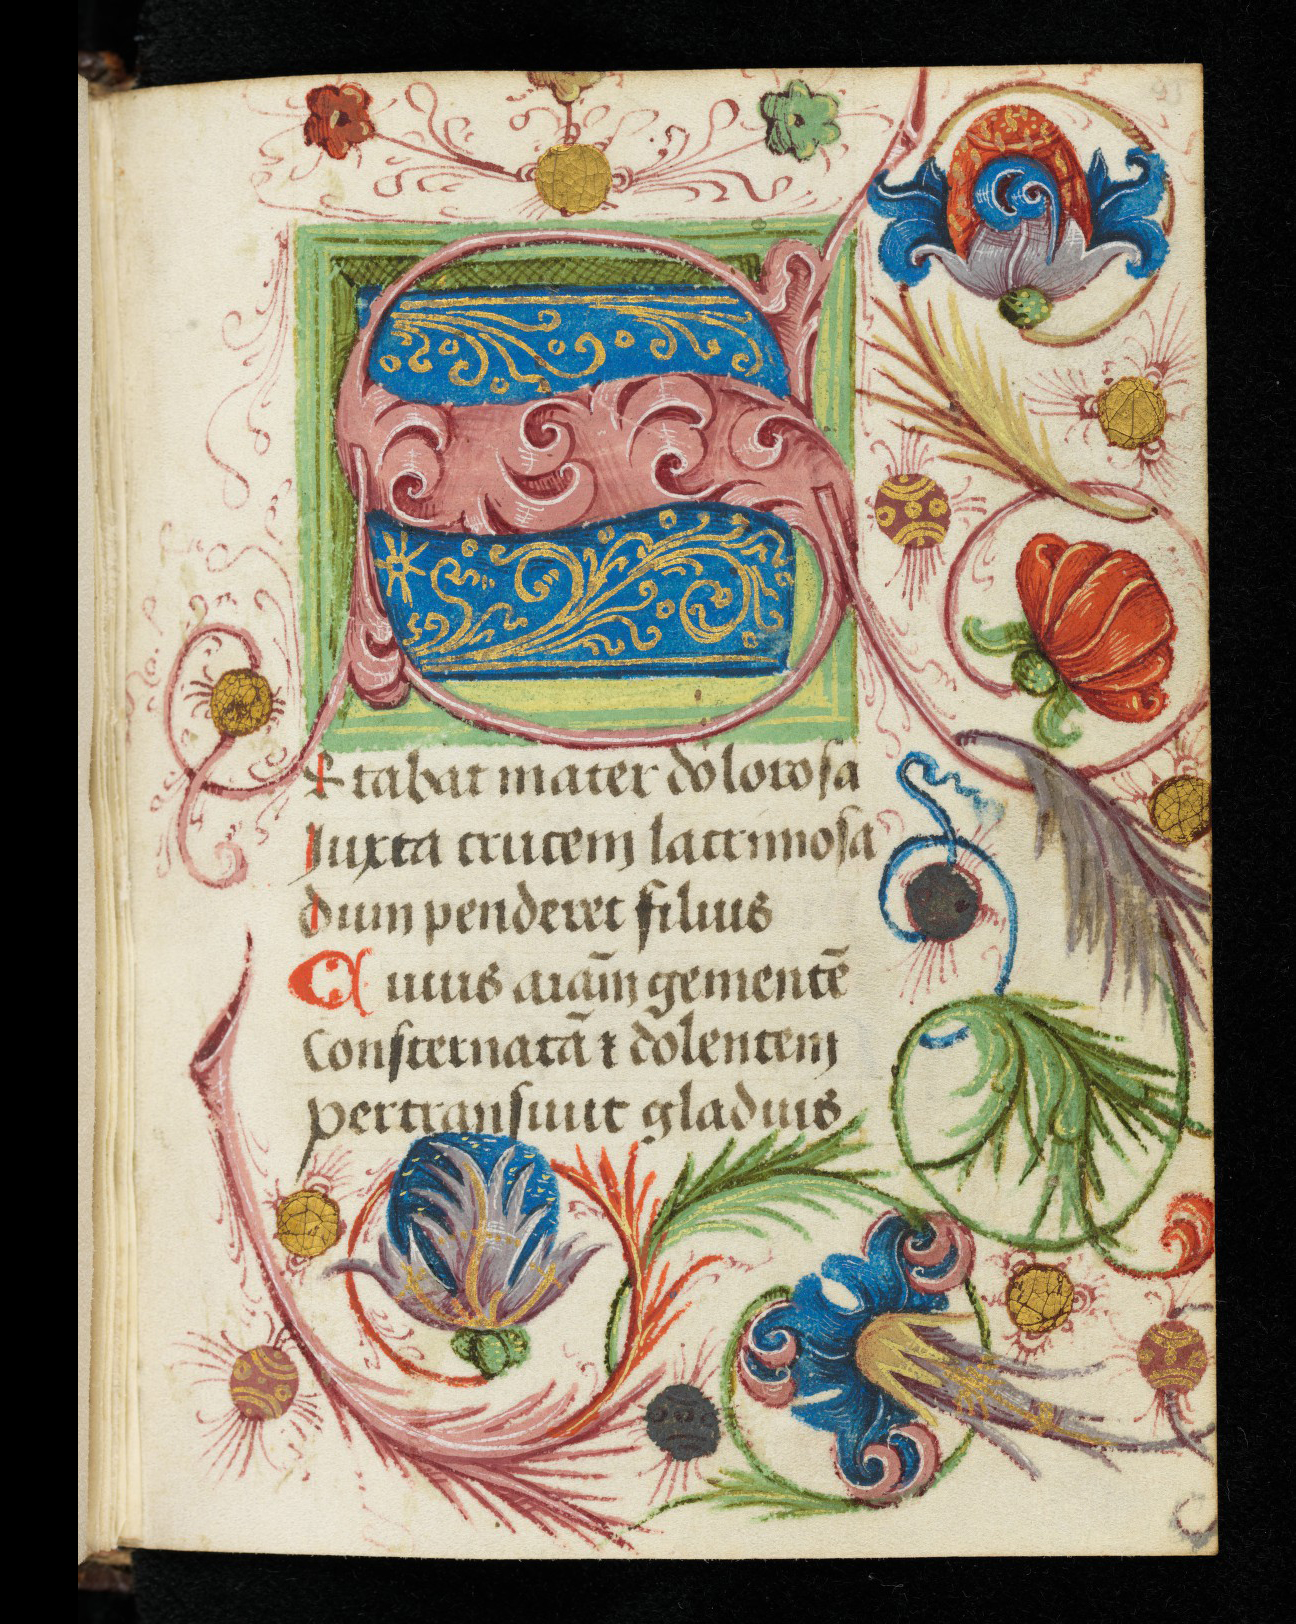 S
tabat mater dolorosa
Iuxta crucem lacrimosa
dum penderet filius
Cuius aiam̄ gementē
Consternatā ⁊ dolentem
pertransiuit gladius